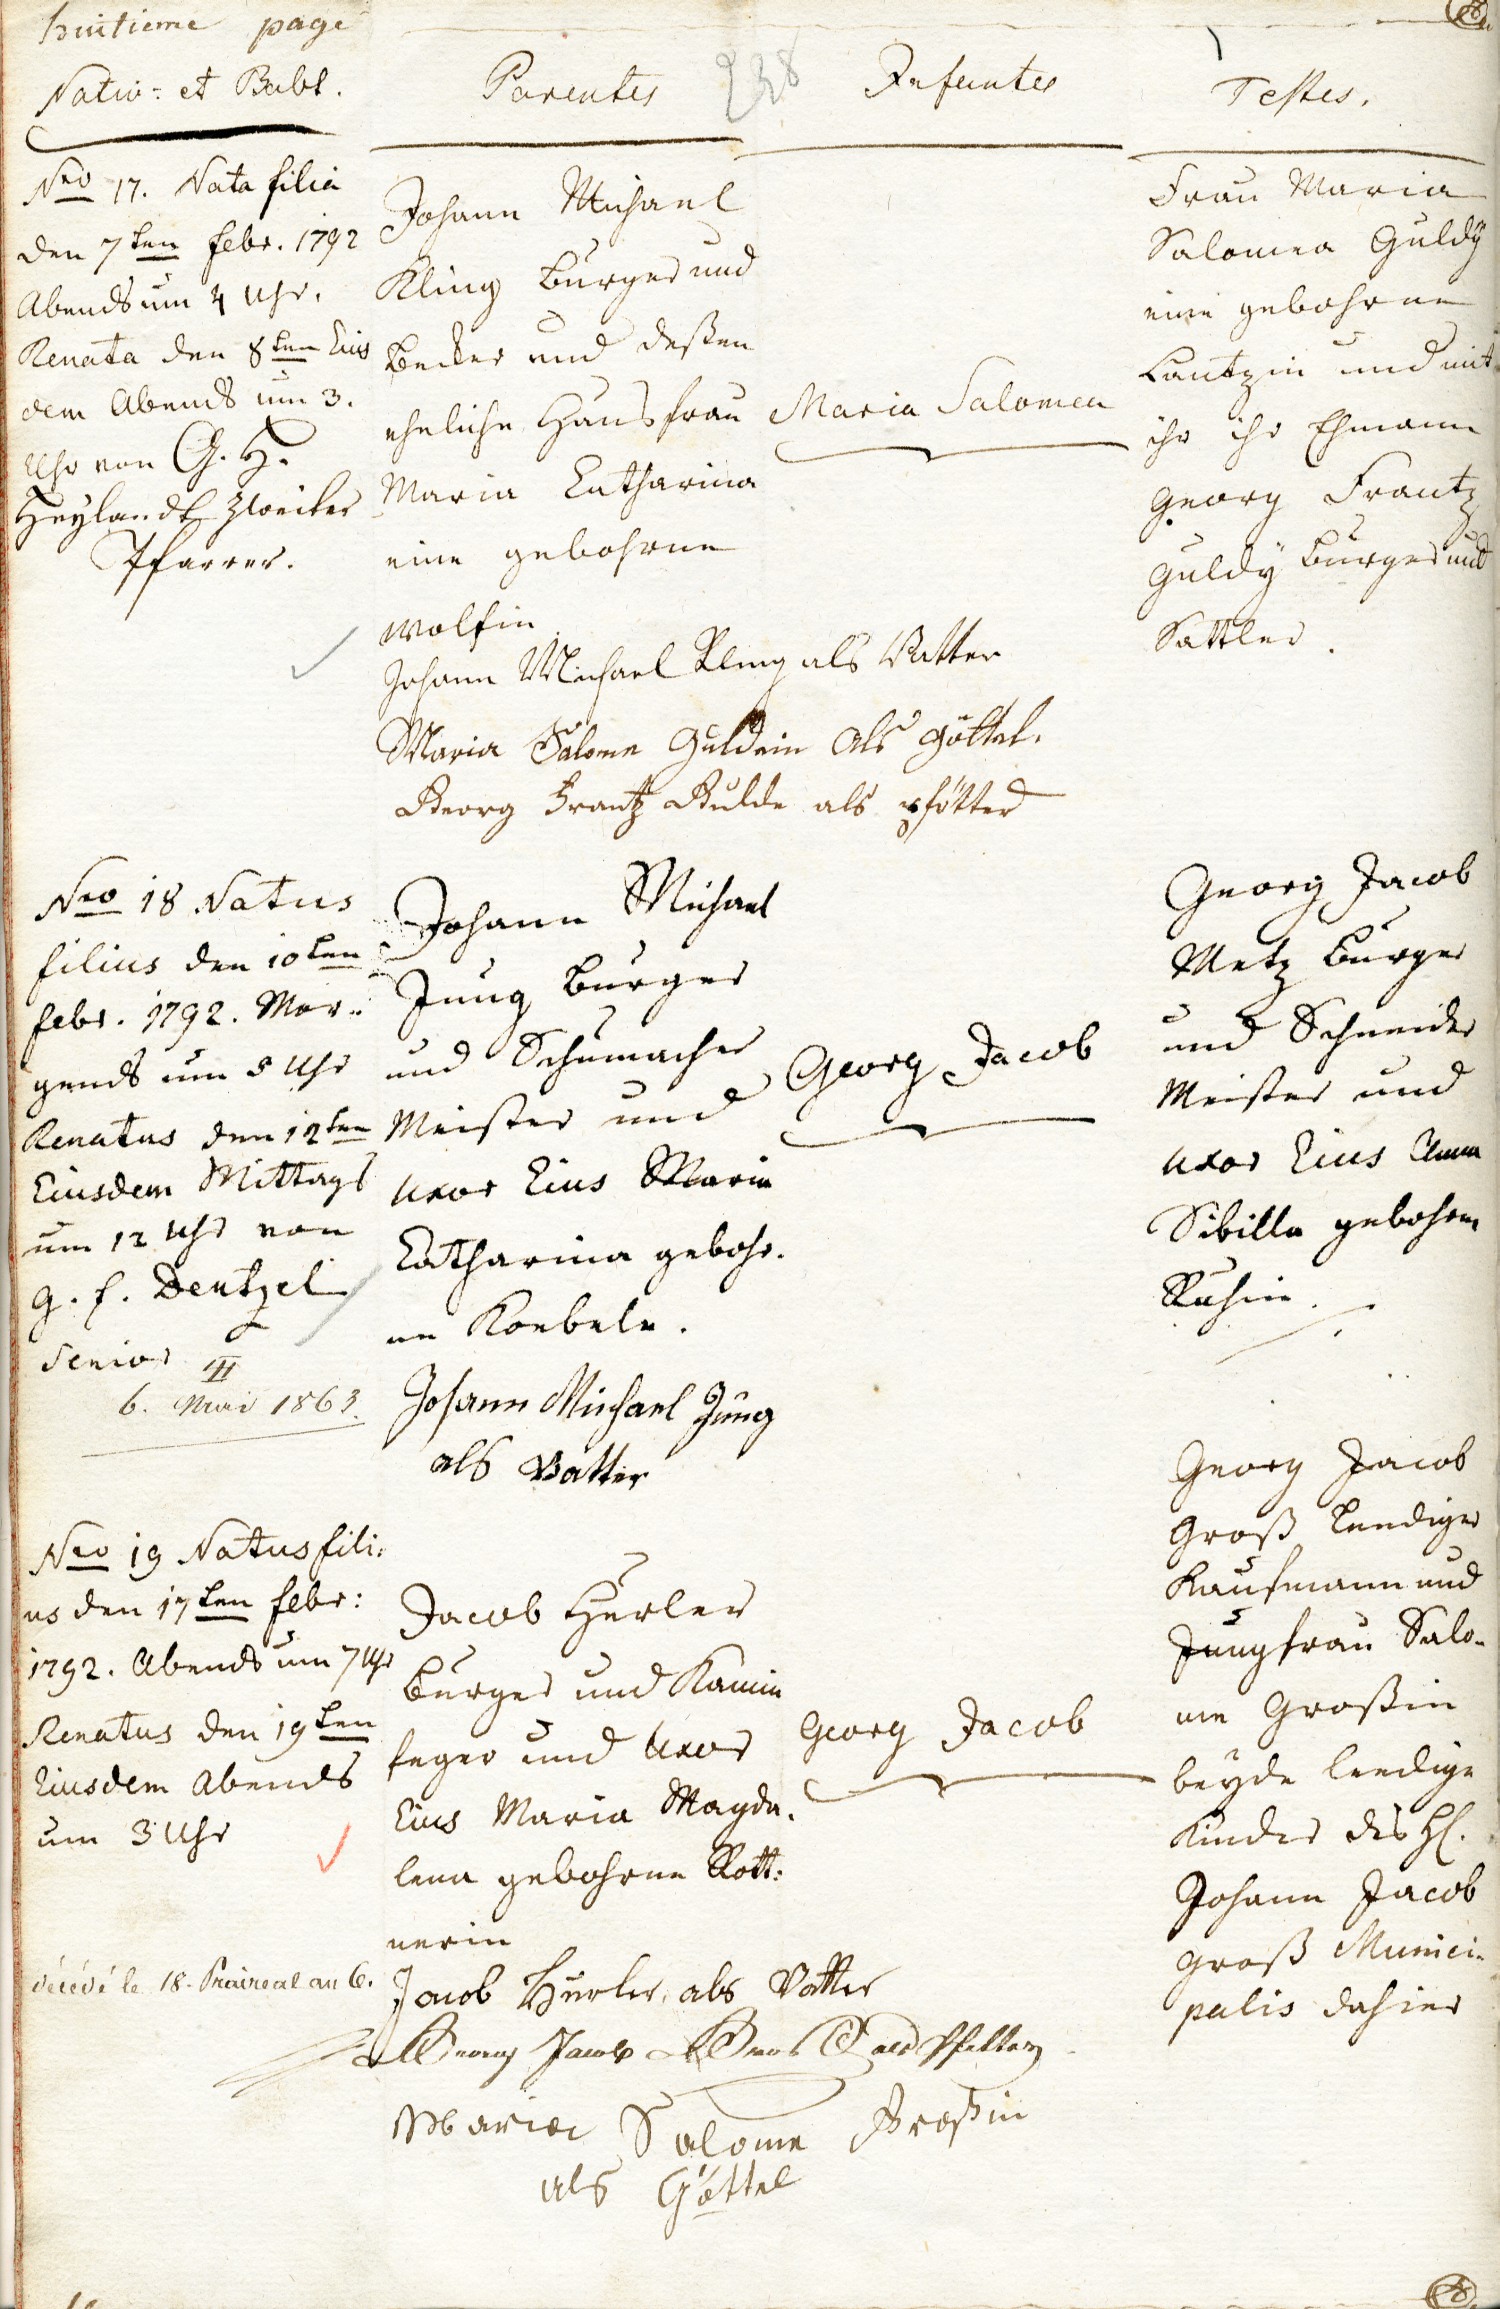 huitieme page
238
Nativ: et Babt.
Parentes
Infantes
Testes.
Nro 17. Nata filia
den 7ten febr. 1792
Abends um 4 Uhr.
Renata den 8ten Eius
dem Abends um 3.
Uhr von G. H.
Heylandt zweiter
Pfarrer.
Johann Michael
Kling burger und
becker und deßen
eheliche Hausfrau
Maria Catharina
eine gebohrne
wolfin
Maria Salomea
Frau Maria
Salomea Guldÿ
eine gebohrne
Lautzin und mit
ihr ihr Ehmann
Georg Frantz
Guldÿ burger und
Sattler.
Johann Michael Kling als Vatter
Maria Salome Guldein als göttel.
Georg Frantz Gulde als pfötter
Nro 18 Natus
filius den 10ten
febr. 1792. Mor:
gends um 5 Uhr
Renatus den 12ten
Eiusdem Mittags
um 12 Uhr von
G. f. Dentzel
Senior
6. Mai 1863.
Johann Michael
Jung burger
und Schumacher
Meister und
uxor Eius Maria
Catharina gebohr.
ne Koebele.
Georg Jacob
Georg Jacob
Metz burger
und Schneider
Meister und
uxor Eius Anna
Sibilla gebohrne
Ruhin.
Johann Michael Jung
als Vatter
Nro 19 Natus fili:
us den 17ten febr:
1792. Abends um 7 Uhr
Renatus den 19ten
Eiusdem Abends
um 3 Uhr
décédé le 18. Prairéal an 6.
Jacob Hurler
burger und Kamin
feger und Uxor
Eius Maria Magda.
lena gebohrne Rott:
nerin
Georg Jacob
Georg Jacob
Groß leediger
Kaufmann und
Jungfrau Salo-
me Großin
beÿde leedige
Kinder des H.
Johann Jacob
Groß Munici-
palis dahier
Jacob Hurler, als Vatter
Georg Jacob Gros als Pfetter
Maria Salome Großin
als Göttel